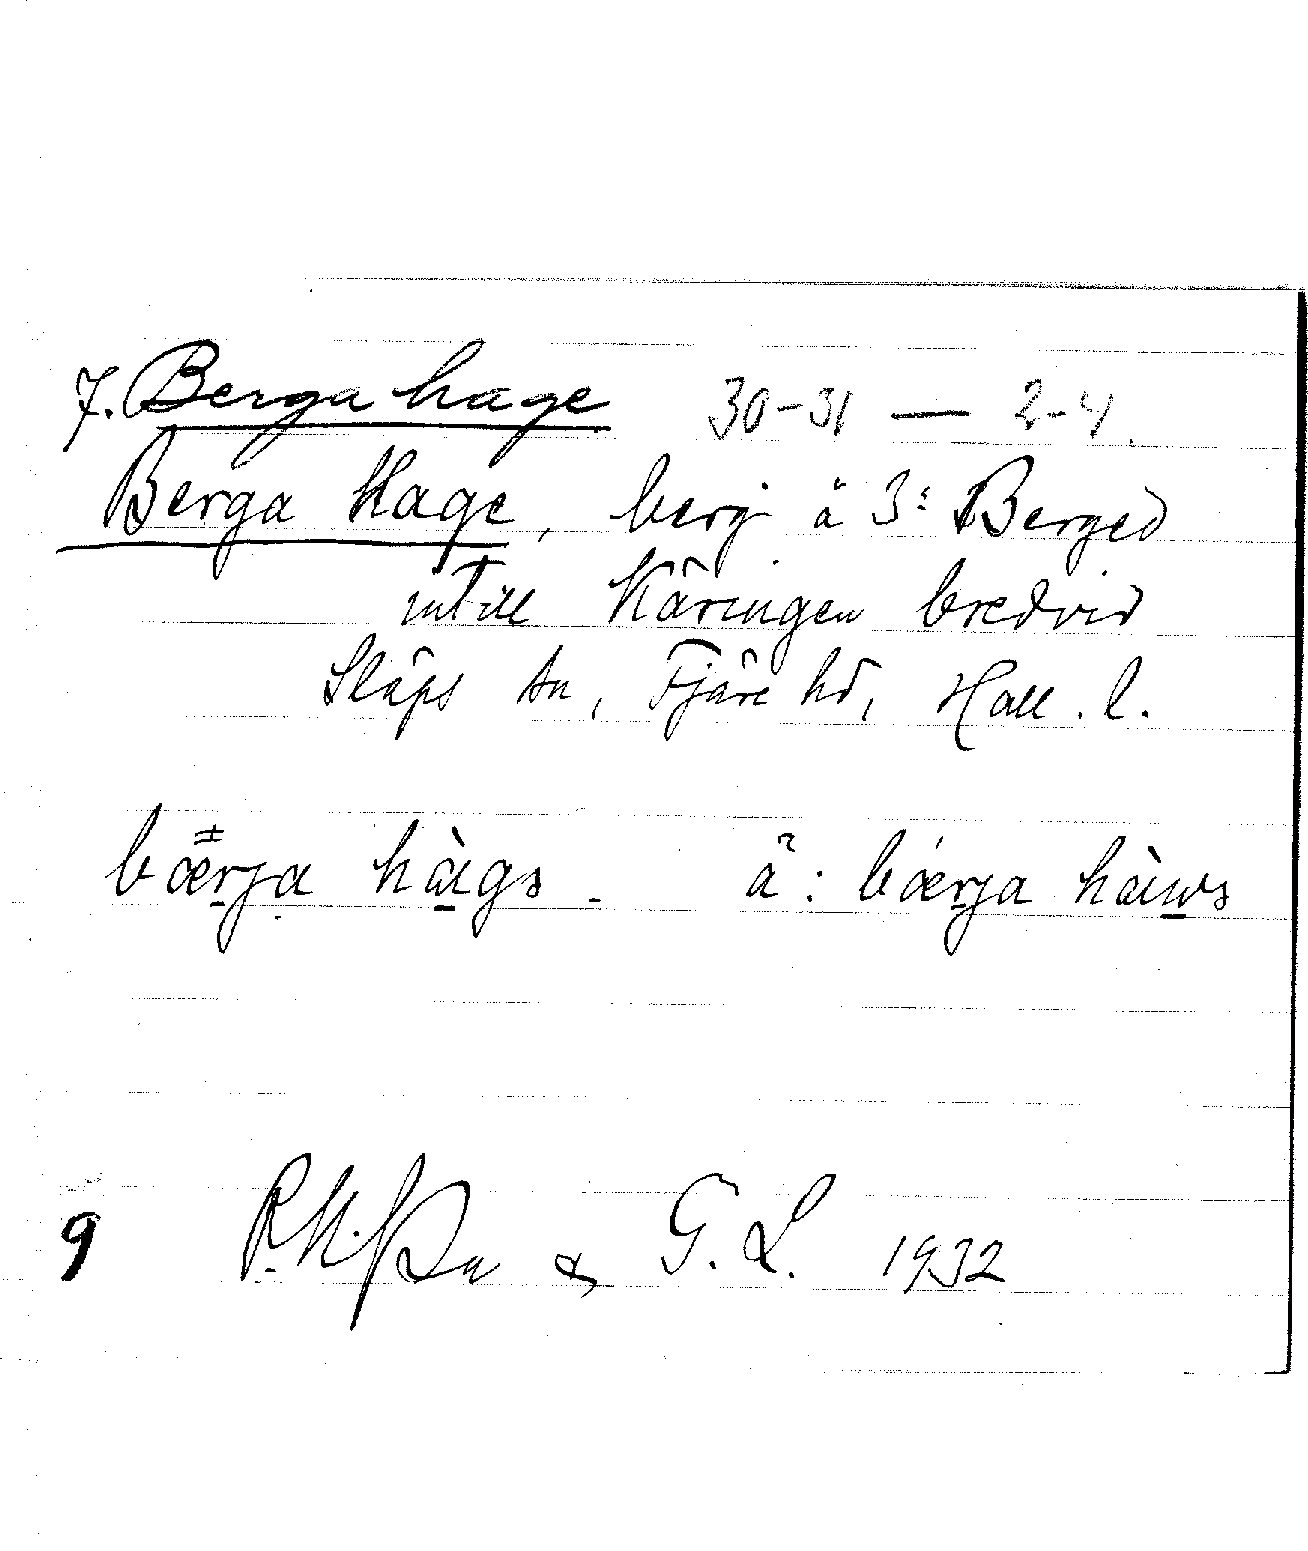 7. Berga hage 30-31 — 2-4.
Berga Hage, berg å 3: Berged
intill Käringen bredvid
Släps sn, Fjäre hd, Hall. l.
bærja hàgs. ä: bærja hàws
& G. L. 1932
9